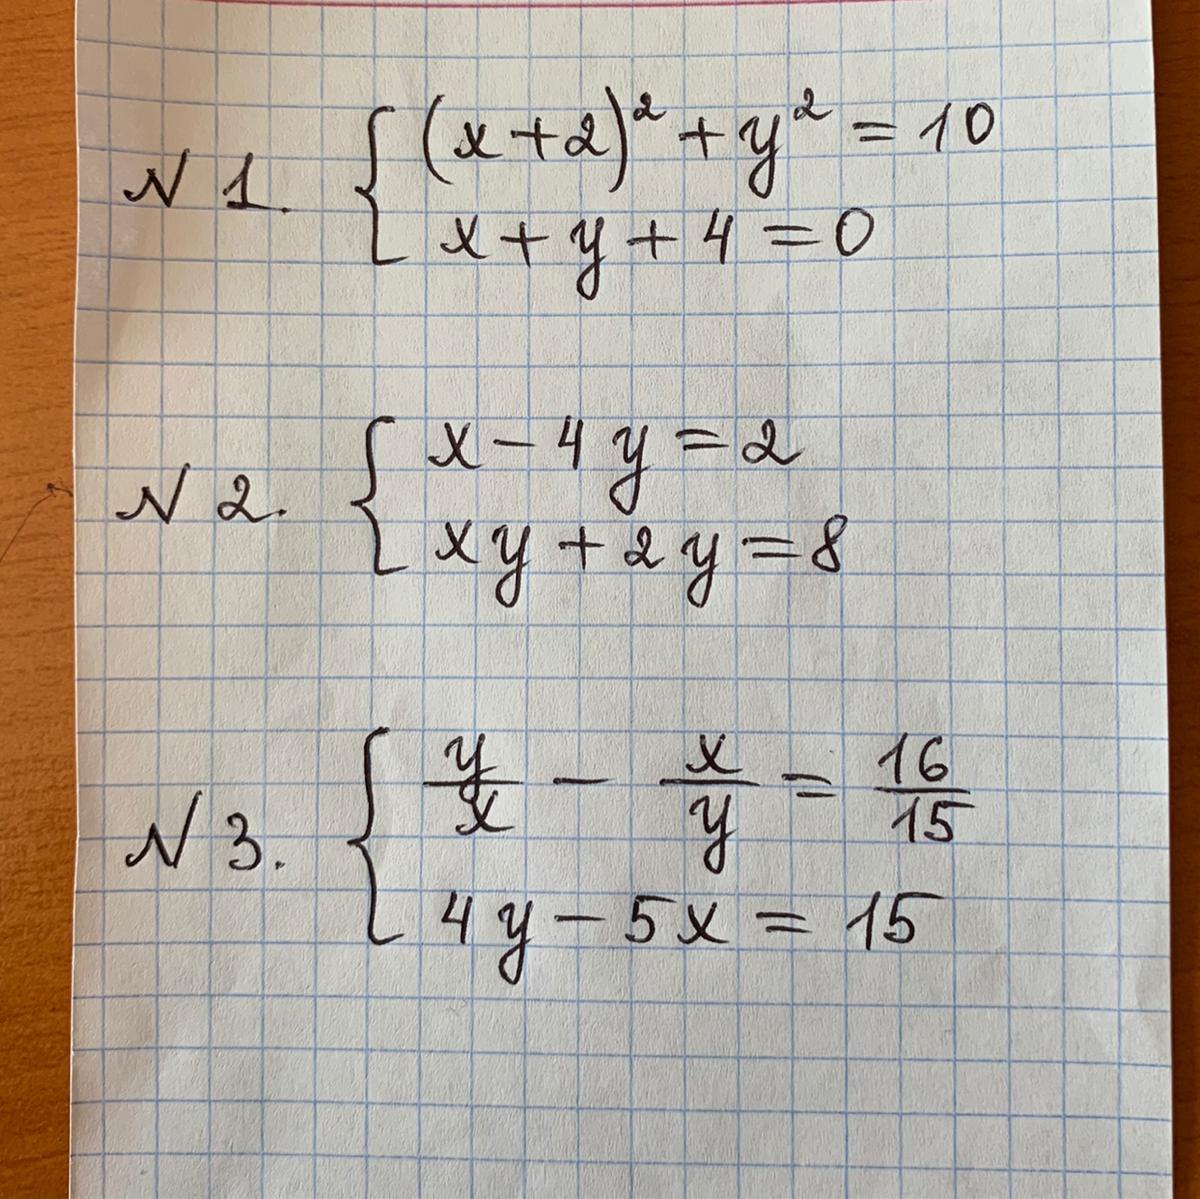 N 1. { (x+2)² + y² = 10
x + y + 4 = 0
N 2. { x - 4y = 2
xy + 2y = 8
N 3. { y/x - x/y = 16/15
4y - 5x = 15